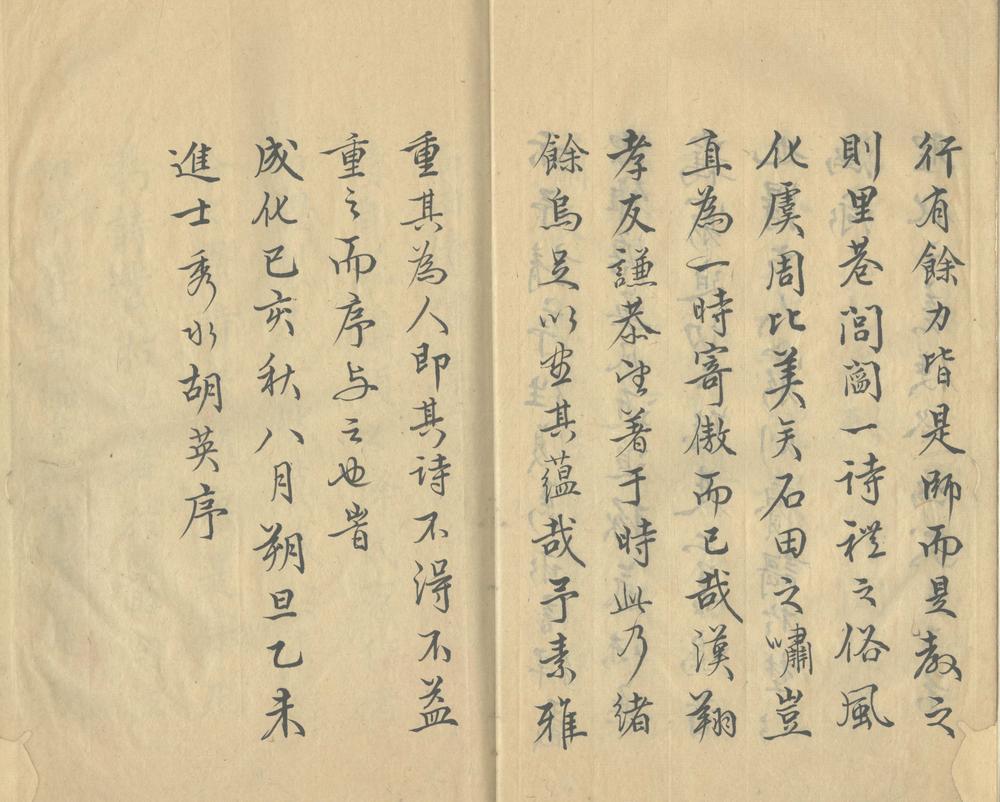 行有餘力皆是師而是教之
則里巷閭閻一詩禮之俗風
化虞周比美矣石田之嘯豈
真為一時寄傲而已哉漢翔
孝友謙恭望著于時此乃緒
餘烏足以盡其蘊哉予素雅
重其為人即其詩不得不益
重之而序与之也旹
成化己亥秋八月朔旦乙未
進士秀水胡英序